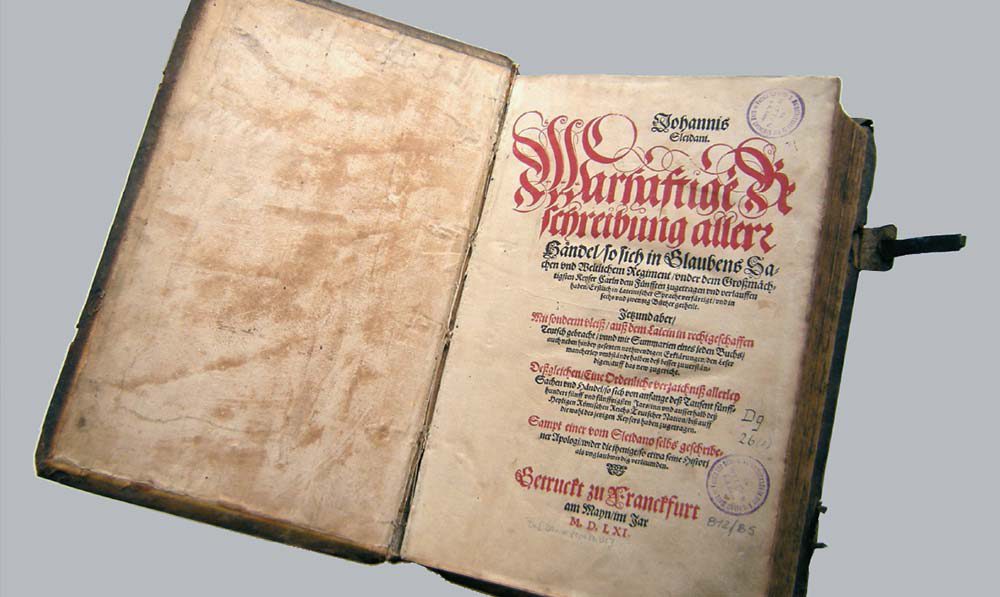 Johannis
Sleidani.
Warhaftige Be
schreibung aller
Händel / so sich in Glaubens Sa-
chen vnd Weltlichem Regiment / vnder dem Großmäch-
tigsten Keyser Carln dem Fünfften zugetragen vnd verlauffen
haben / Erstlich in Lateinischer Sprache verfärtigt / vnd in
sechs vnd zwentzig Bücher getheilt.
Jetzund aber /
Mit sonderm vleiß / auß dem Latein in rechtgeschaffen
Teutsch gebracht / vnnd mit Summarien eines jeden Buchs /
auch neben hinbey gesetzten nothwendigen Erklärungen / den Leser
mancherley vmbstände halben deß besser zuverstän-
digen / auff das new zugericht.
Deßgleichen / Eine Ordenliche verzaichniß allerley
Sachen vnd Händel / so sich von anfange deß Tausent fünff-
hundert fünff vnd fünffzigsten Jars / inn vnd ausserhalb deß
Heyligen Römischen Reichs Teutscher Nation / biß auff
die wahl des jetzigen Keysers haben zugetragen.
Sampt einer vom Sleidano selbs geschribe-
ner Apologi / wider die jhenige / so etwa seine Histori
als vnglaubwirdig verleumden.
Getruckt zu Franckfurt
am Mayn / im Jar
M. D. LXI.
Dg
26(1)
B12/B5